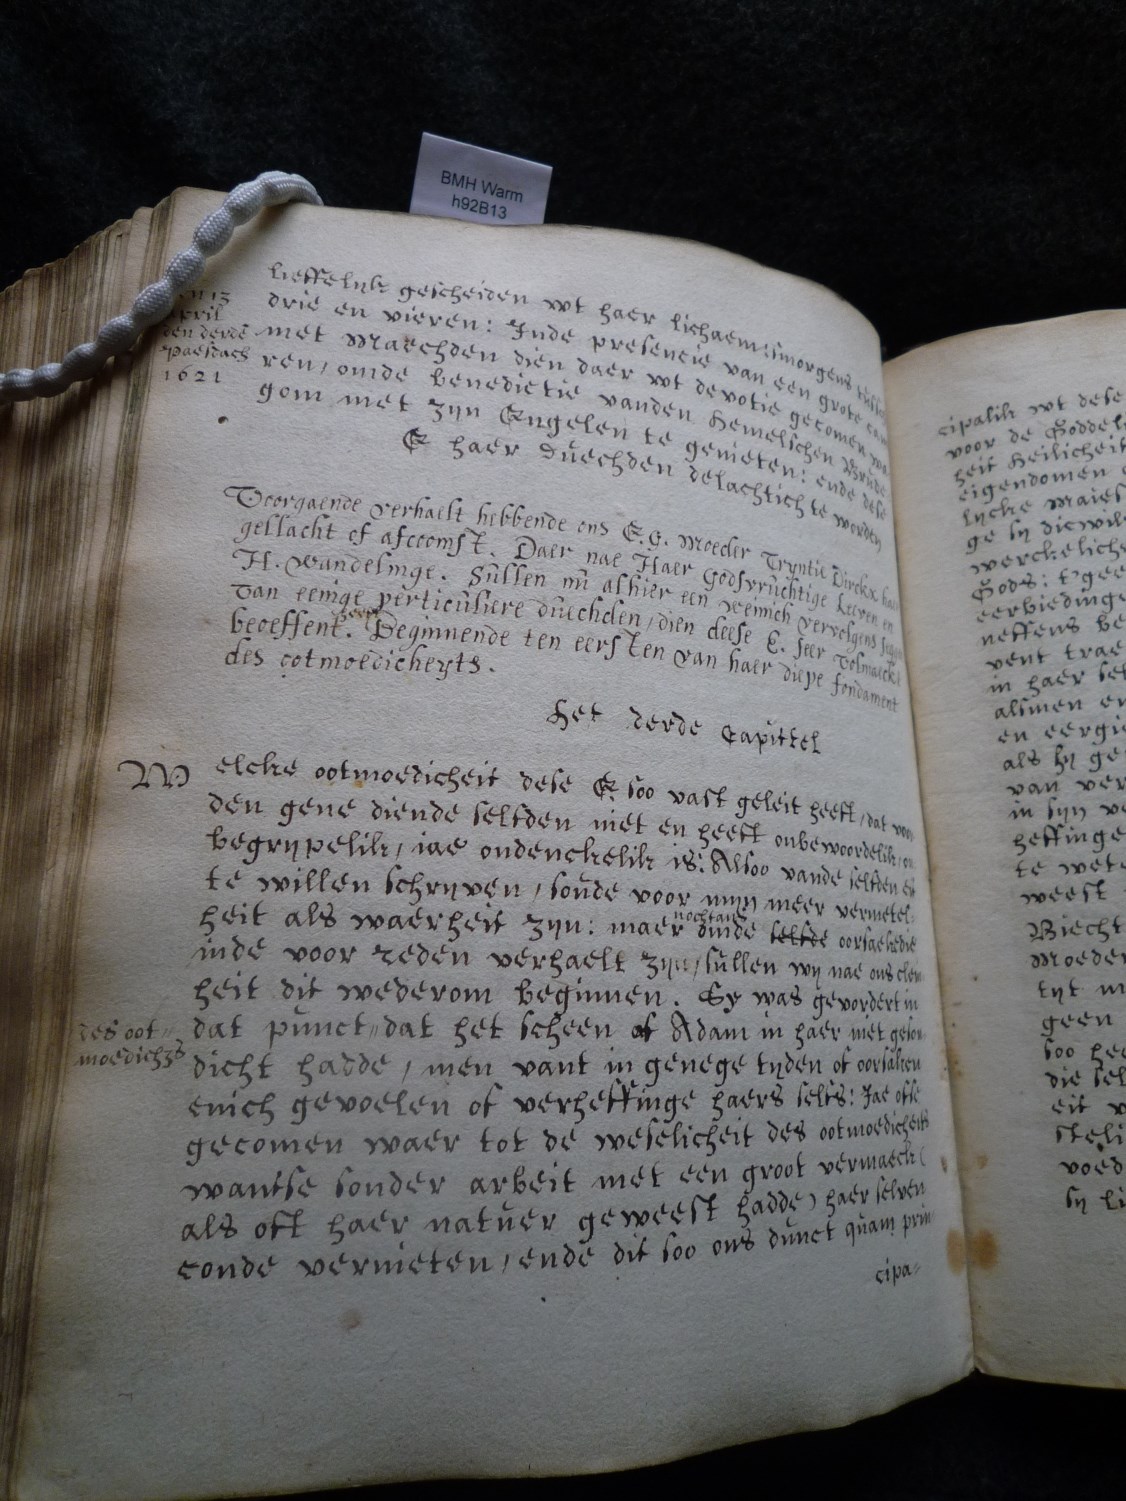 BMH Warm
h92B13
lieffelijk gescheiden wt haer lichaem: smorgens tussen
drie en vieren: Inde presencie van een grote
met Maechden dien daer wt devotie gecomen
ren, omde benedictie vanden hemelschen Brude
gom met zijn Engelen te genieten: ende dese
E haer duechden delachtich te worden
13
April
den derde
paesdach
1621
Voorgaende verhaelt hebbende ons E. g. Moeder Tryntie Dircks
geslacht of afcoomst. Daer nae Haer Godsvruchtige Leeven en
H. wandelinge. Sullen nu alhier een weinich vervolgens
van eenige perticuliere duechden, dien deese E. seer volmaeckt
heeft
beoeffent. Beginnende ten eersten van haer diepe fondament
des ootmoedicheyts.
Het derde Capittel
Welcke ootmoedicheit dese E soo vast geleit heeft, dat
den gene diende selfden niet en heeft onbewoordelik,
begrypelik, iae ondenckelik is: Alsoo vande selfden
te willen schryven, soude voor mijn meer vermetel
heit als waerheit zijn: maer nochtans omde selfde oorsaeke die
inde voor reden verhaelt zijn, sullen wij nae ons clein
heit dit wederom beginnen. Sy was gevordert in
dat punct, dat het scheen of Adam in haer niet geson
des oot
moedichts
dicht hadde, men vant in genege tyden of oorsaken
enich gevoelen of verheffinge haers selfs: Jae ofse
gecomen waer tot de weselicheit des ootmoedicheits
wantse sonder arbeit met een groot vermaeck (
als oft haer natuer geweest hadde) haer selven
conde vernieten, ende dit soo ons dunct quam prin
cipa
cipalik wt dese
voor de Goddel
heit Heilicheit
eigendomen
lycke Maies
ge in die wil
werckelich
Gods:
eerbiedinge
neffens
vent
in haer
alsmen en
en
als hy ge
van ver
in syn
heffinge
te wete
weest
Biecht
Moeder
tyt
geen
soo hee
die sel
eit
steli
voed
sy li